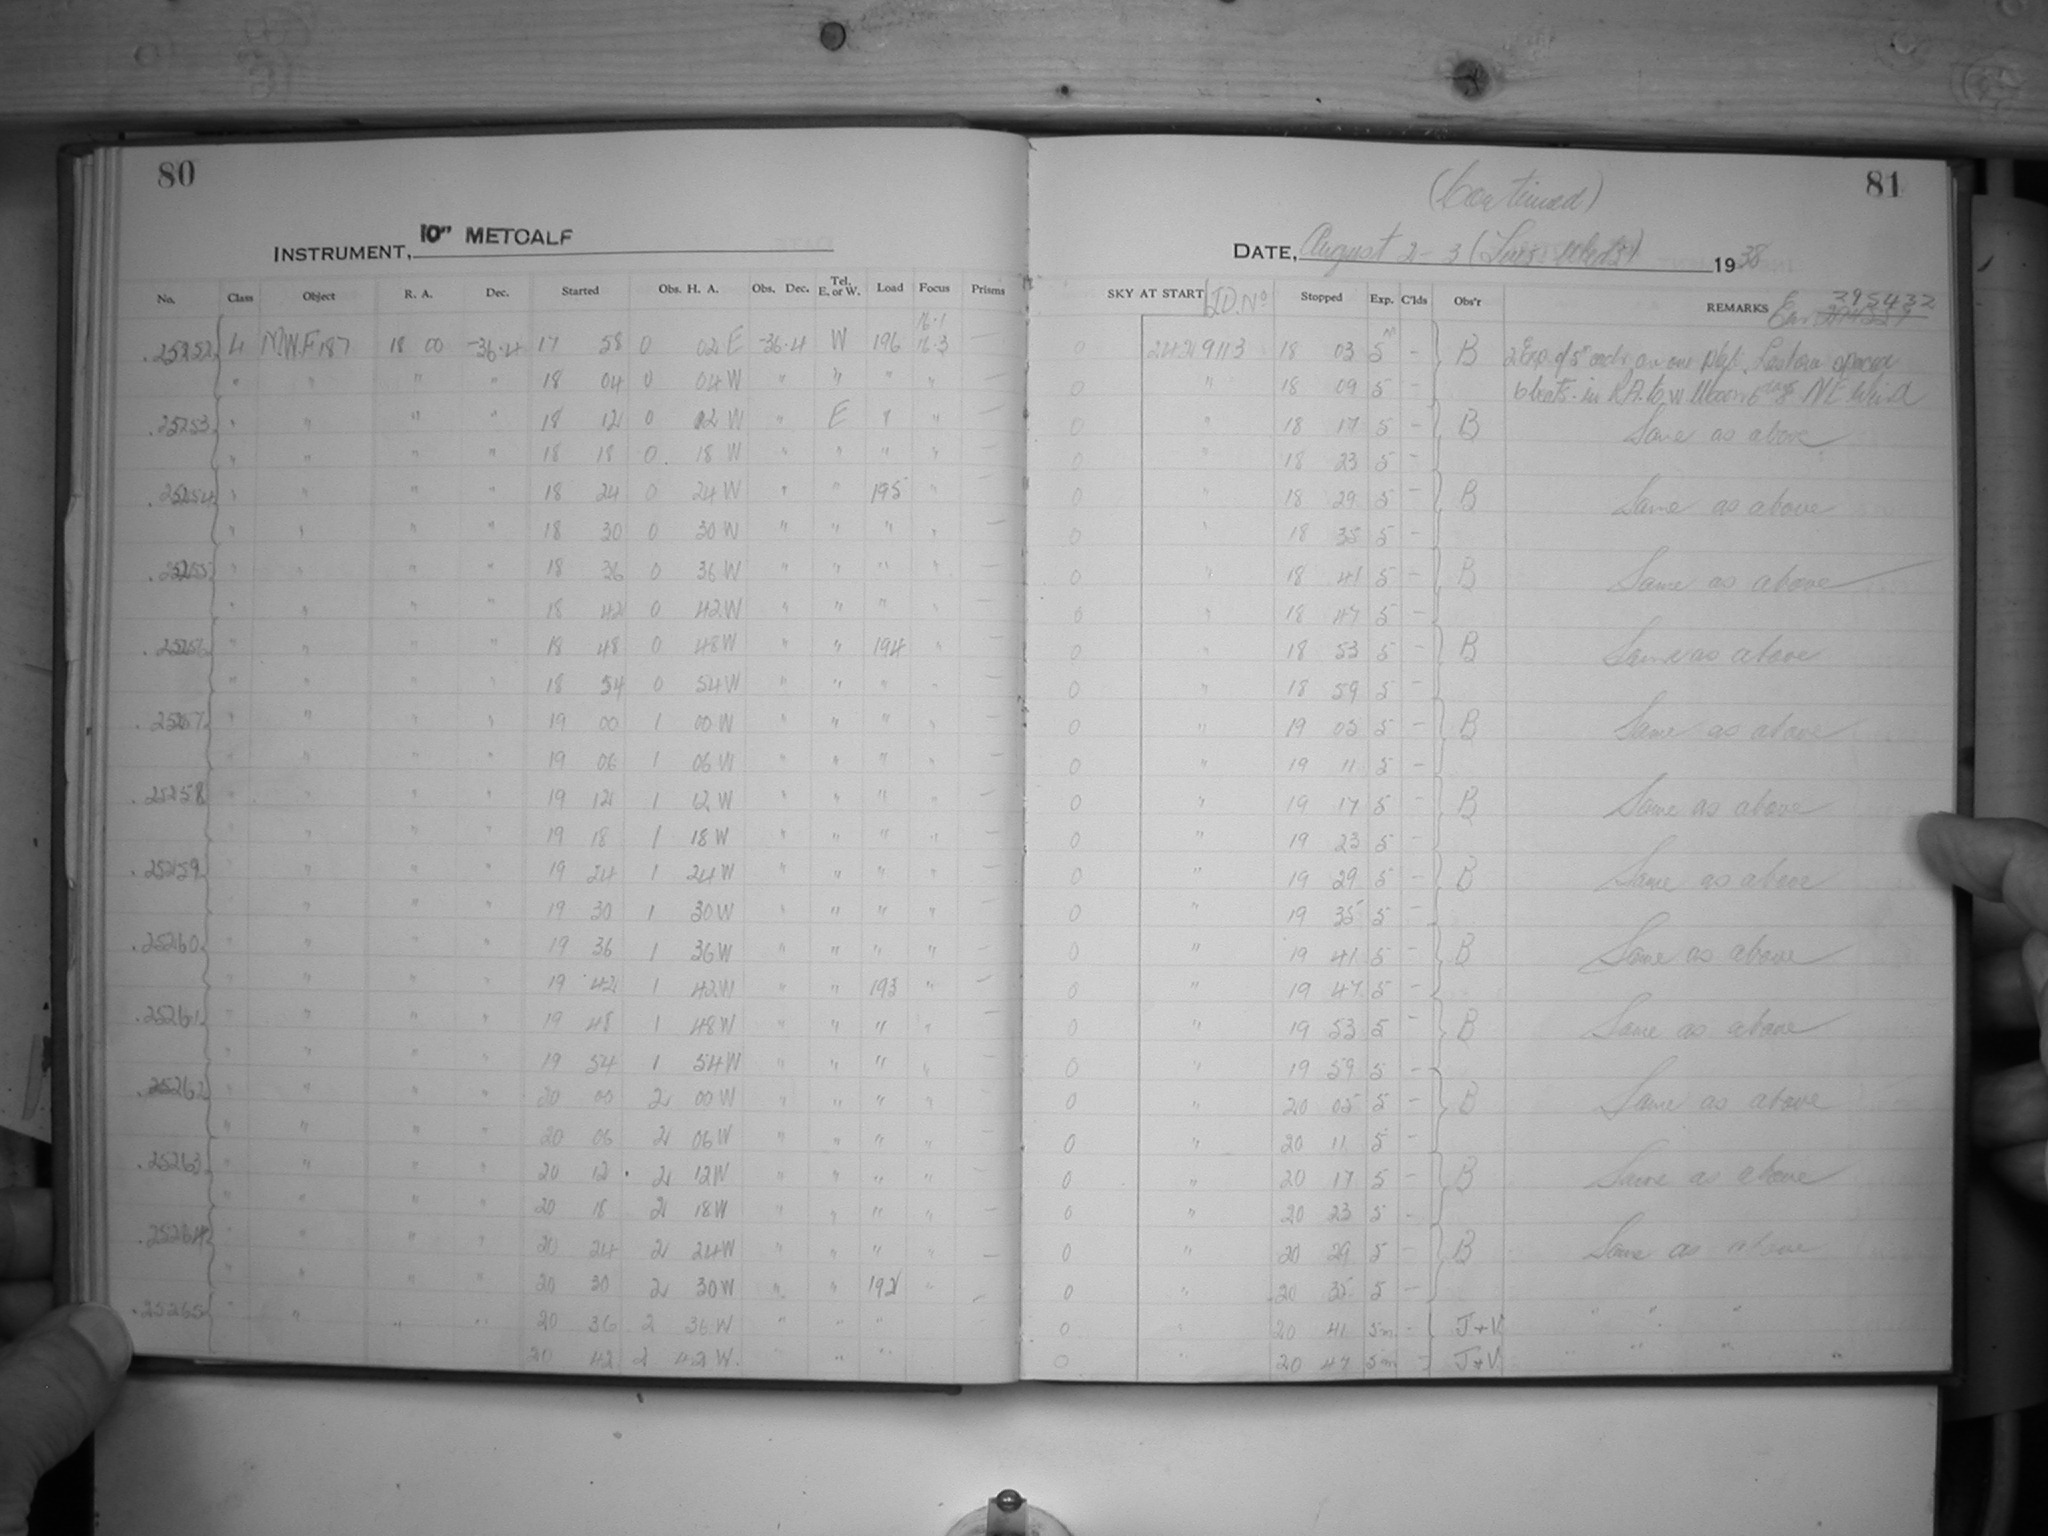 80
INSTRUMENT, 10" METCALF
No. Class Object R. A. Dec. Started Obs. H. A. Obs. Dec. Tel. E. or W. Load Focus Prisms
16.1
.25252 4 M.W.F 187 18 00 -36.4 17 58 0 02 E -36.4 W 196 16.3 —
" " " " " 18 04 0 04 W " " " " —
.25253 " " " " 18 12 0 12 W " E " " —
" " " " " 18 18 0 18 W " " " " —
.25254 " " " " 18 24 0 24 W " " 195 " —
" " " " 18 30 0 30 W " " " " —
.25255 " " " " 18 36 0 36 W " " " " —
" " " " 18 42 0 42 W " " " " —
.25256 " " " " 18 48 0 48 W " " 194 " —
" " " " 18 54 0 54 W " " " " —
.25257 " " " " 19 00 1 00 W " " " " —
" " " " 19 06 1 06 W " " " " —
.25258 " " " " 19 12 1 12 W " " " " —
" " " " 19 18 1 18 W " " " " —
.25259 " " " " 19 24 1 24 W " " " " —
" " " " 19 30 1 30 W " " " " —
.25260 " " " " 19 36 1 36 W " " " " —
" " " " 19 42 1 42 W " " 193 " —
.25261 " " " " 19 48 1 48 W " " " " —
" " " " 19 54 1 54 W " " " " —
.25262 " " " " 20 00 2 00 W " " " " —
" " " " 20 06 2 06 W " " " " —
.25263 " " " " 20 12 2 12 W " " " " —
" " " " 20 18 2 18 W " " " " —
.25264 " " " " 20 24 2 24 W " " " " —
" " " " 20 30 2 30 W " " 192 " —
.25265 " " " " 20 36 2 36 W " " "
20 42 2 42 W. " " "
81
(Continued)
DATE, August 2-3 (Tues-Weds) 1938
SKY AT START J.D. No Stopped Exp. C'lds Obs'r REMARKS E 295432
0 2429113 18 03 5m – B 2 Exp. of 5m each on one plate.
0 " 18 09 5 – in R.A. to W Moon 6 days NE Wind
0 " 18 17 5 – B Same as above
0 " 18 23 5 –
0 " 18 29 5 – B Same as above
0 " 18 35 5 –
0 " 18 41 5 – B Same as above
0 " 18 47 5 –
0 " 18 53 5 – B Same as above
0 " 18 59 5 –
0 " 19 05 5 – B Same as above
0 " 19 11 5 –
0 " 19 17 5 – B Same as above
0 " 19 23 5 –
0 " 19 29 5 – B Same as above
0 " 19 35 5 –
0 " 19 41 5 – B Same as above
0 " 19 47 5 –
0 " 19 53 5 – B Same as above
0 " 19 59 5 –
0 " 20 05 5 – B Same as above
0 " 20 11 5 –
0 " 20 17 5 – B Same as above
0 " 20 23 5 –
0 " 20 29 5 – B Same as above
0 " 20 35 5 –
0 " 20 41 5m – J+V " " "
0 " 20 47 5m – J+V " " " "